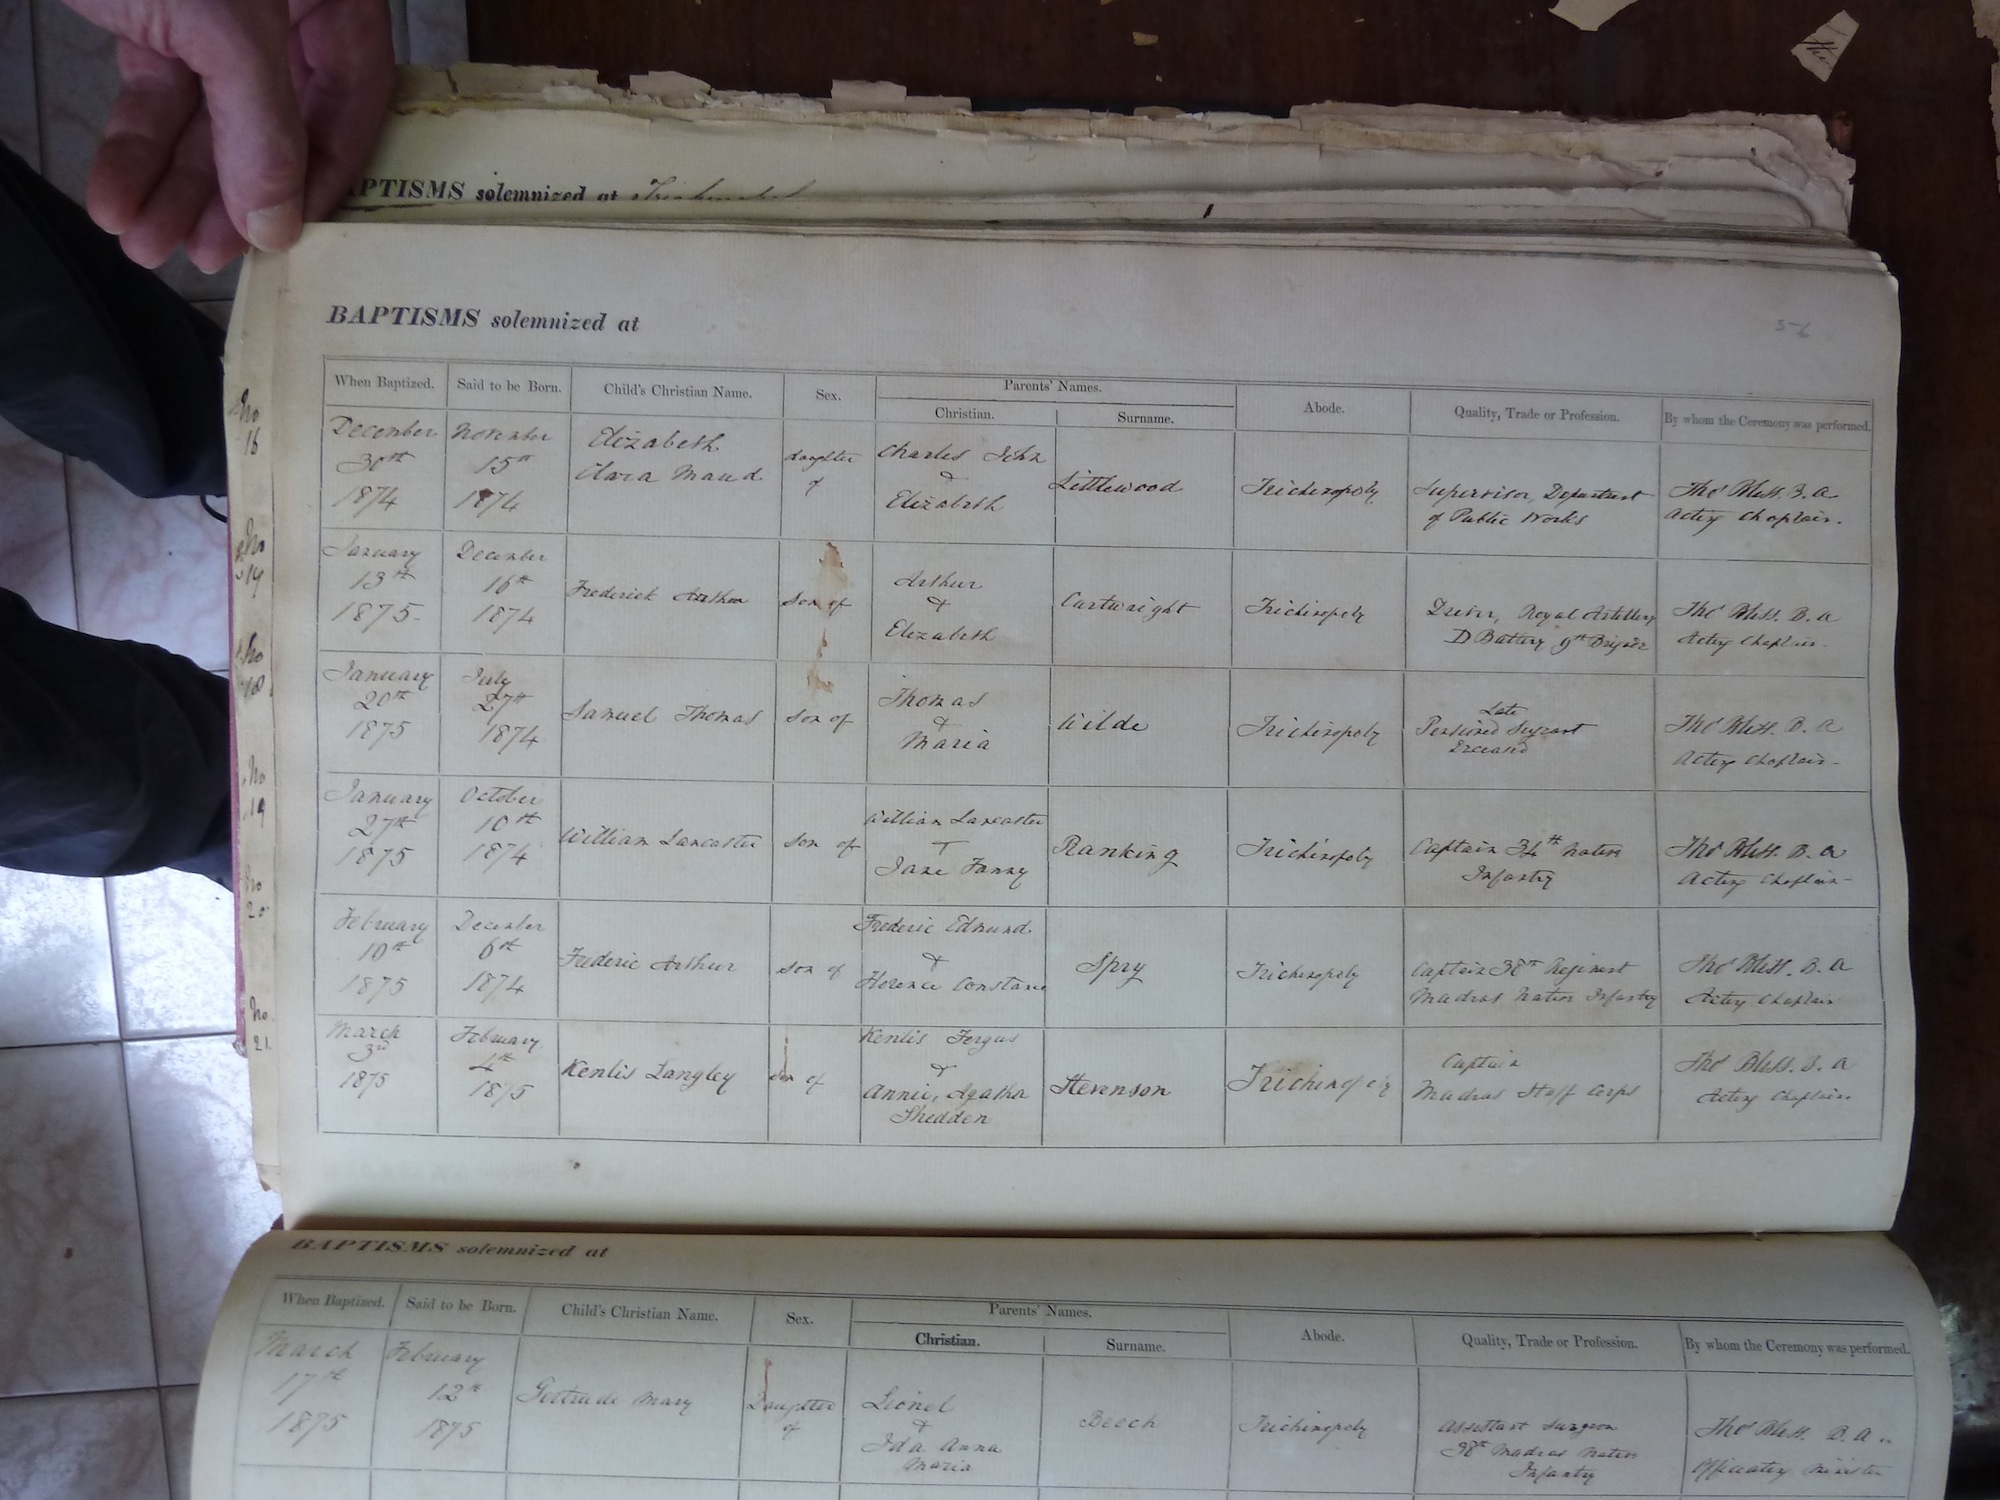 BAPTISMS solemnized at
BAPTISMS solemnized at
56
When Baptized. Said to be Born. Child's Christian Name. Sex. Parents' Names. Abode. Quality, Trade or Profession. By whom the Ceremony was performed.
Christian. Surname.
No 16
December 30th 1874
November 15th 1874
Elizabeth Clara Maud
daughter of
Charles John & Elizabeth
Littlewood
Trichinopoly
Supervisor, Department of Public Works
Thos B. A Acting Chaplain.
No 17
January 13th 1875.
December 16th 1874
Frederick Arthur
Son of
Arthur & Elizabeth
Cartwright
Trichinopoly
Driver, Royal Artillery D Battery 9th Brigade
Thos B. A Acting Chaplain.
No 18
January 20th 1875
July 27th 1874
Samuel Thomas
son of
Thomas & Maria
Wilde
Trichinopoly
Late Pensioned Sergeant
Thos B. A Acting Chaplain.
No 19
January 27th 1875
October 10th 1874
William Lancaster
son of
William Lancaster & Jane Fanny
Ranking
Trichinopoly
Captain 34th Native Infantry
Thos B. A Acting Chaplain
No 20
February 10th 1875
December 6th 1874
Frederic Arthur
son of
Frederic Edmund & Florence Constance
Spry
Trichinopoly
Captain 38th Regiment Madras Native Infantry
Thos B. A Acting Chaplain
No 21
March 3rd 1875
February 4th 1875
Kenlis Langley
son of
Kenlis Fergus & Annie, Agatha Shedden
Stevenson
Trichinopoly
Captain Madras Staff Corps
Thos B. A Acting Chaplain.
BAPTISMS solemnized at
When Baptized. Said to be Born. Child's Christian Name. Sex. Parents' Names. Abode. Quality, Trade or Profession. By whom the Ceremony was performed.
Christian. Surname.
March 17th 1875
February 12th 1875
Gertrude Mary
Daughter of
Lionel & Ida Anna Maria
Beech
Trichinopoly
Assistant Surgeon 38th Madras Native Infantry
Thos B. A.. Officiating Minister